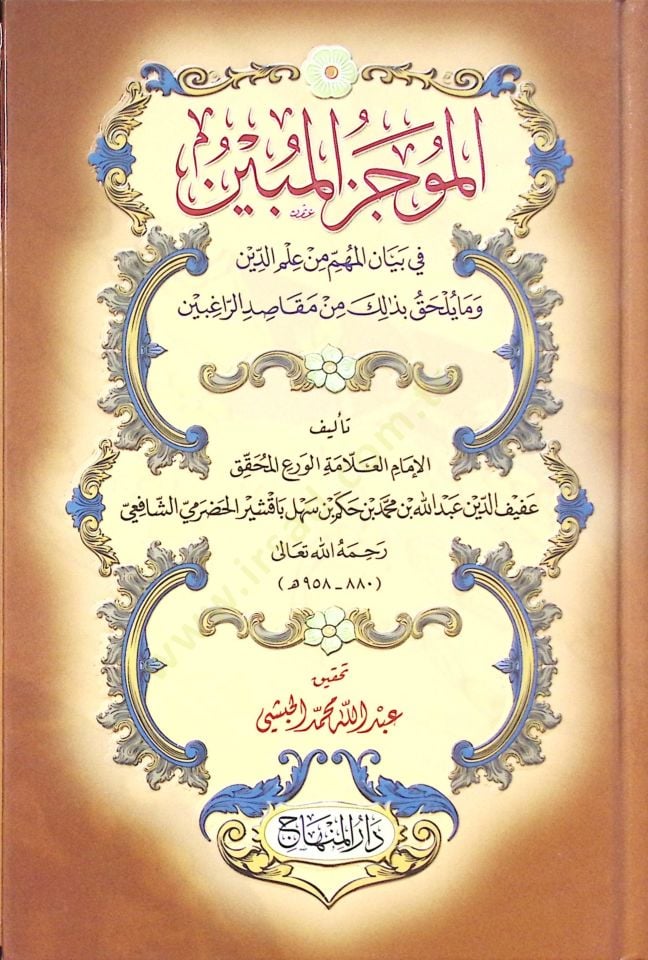 المُوجَزُ المُبِيْنُ
في بَيَانِ المُهِمِّ مِنْ عِلْمِ الدِّيْنِ
وَمَا يُلْحَقُ بِذَلِكَ مِنْ مَقَاصِدِ الرَّاغِبِيْنَ
تأليف
الإمام العلّامة الورع المحقّق
عفيف الدّين عبد الله بن محمّد بن حكم بن سهل باقشير الحضرميّ الشّافعيّ
رحمه الله تعالى
(٨٨٠ - ٩٥٨ هـ)
تحقيق
عبد الله محمّد الحبشي
دار المنهاج